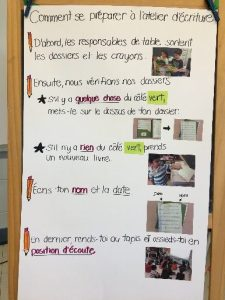 Comment se préparer à l'atelier d'écriture
D'abord, les responsables de table sortent
les dossiers et les crayons.
Ensuite, nous vérifions nos dossiers
★ S'il y a quelque chose du côté vert,
mets-le sur le dessus de ton dossier:
★ S'il n'y a rien du côté vert, prends
un nouveau livre.
Écris ton nom et la date
En dernier rends-toi au tapis et assieds-toi en
position d'écoute.